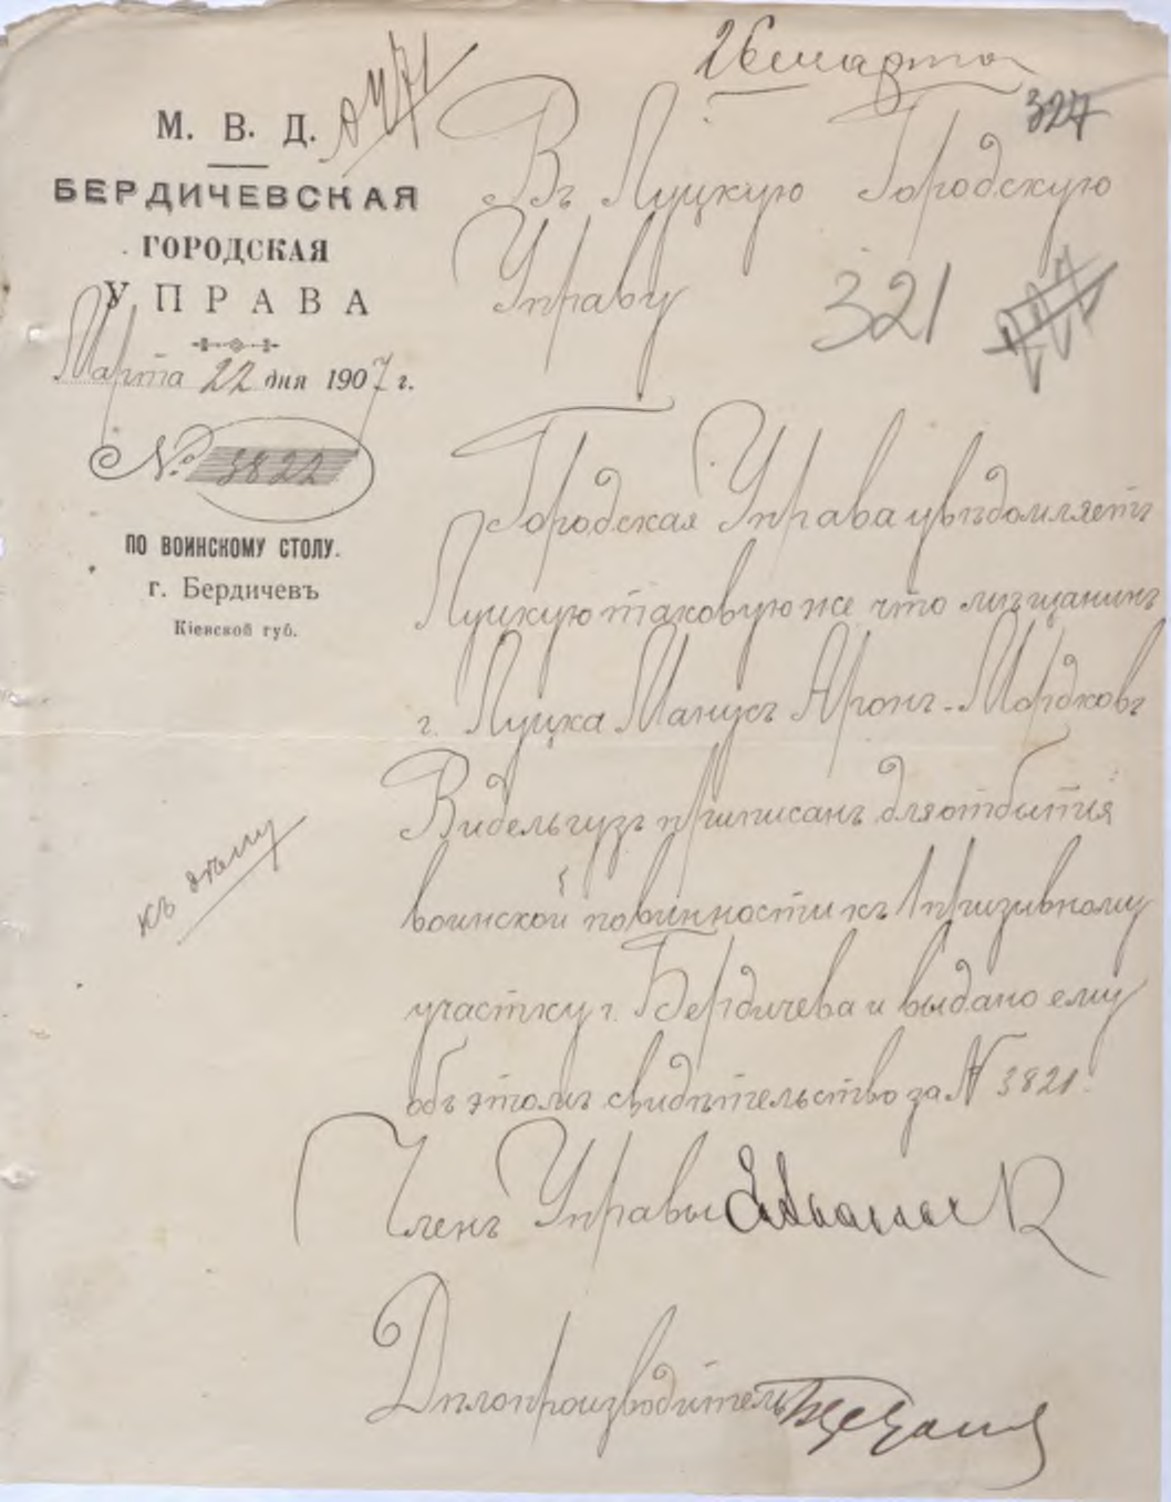 26 марта
327
М. В. Д.
БЕРДИЧЕВСКАЯ
ГОРОДСКАЯ
УПРАВА
Марта 22 дня 1907 г.
№ 3822
ПО ВОИНСКОМУ СТОЛУ.
г. Бердичевъ
Кіевской губ.
Въ Луцкую Городскую
Управу
321
Городская Управа увѣдомляетъ
Луцкую таковую же что мѣщанинъ
г. Луцка Манусъ Аронъ-Мордковъ
Видельгузъ приписанъ для отбытія
воинской повинности къ 1 призывному
участку г. Бердичева и выдано ему
объ этомъ свидѣтельство за № 3821.
къ дѣлу
Членъ Управы
Дѣлопроизводитель